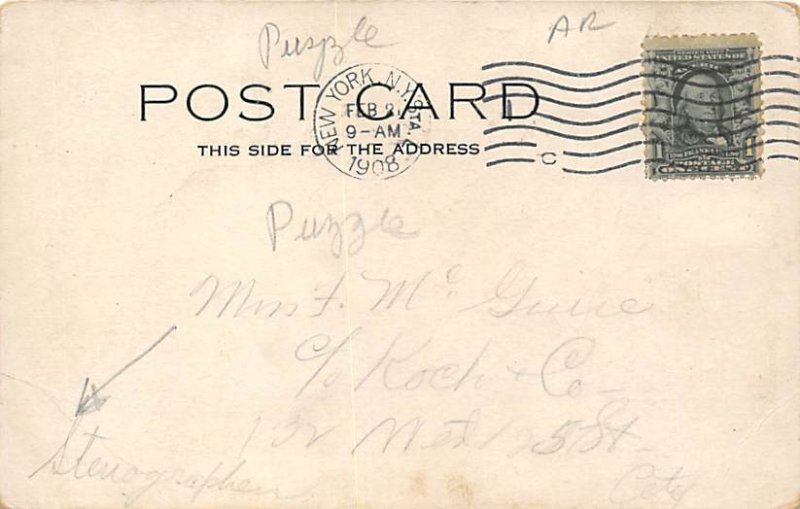 Puzzle
AR
POST CARD
THIS SIDE FOR THE ADDRESS
NEW YORK, N.Y. STA.
FEB 2
9-AM
1908
C
Puzzle
Miss F. Mc Guire
c/o Koch & Co
132 West 125 St.
City
Stenographer